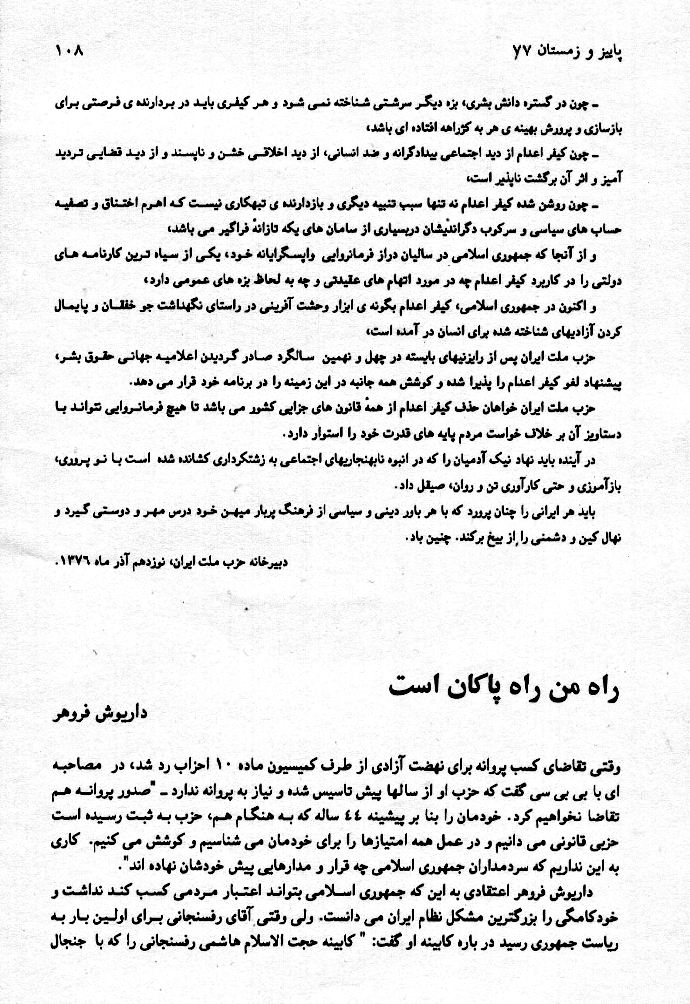 پاییز و زمستان ۷۷
۱۰۸
ـ چون در گستره دانش بشری، بزه دیگر سرشتی شناخته نمی شود و هر کیفری باید در بردارنده ی فرصتی برای
بازسازی و پرورش بهینه ی هر به کژراهه افتاده ای باشد،
ـ چون کیفر اعدام از دید اجتماعی بیدادگرانه و ضد انسانی، از دید اخلاقی خشن و ناپسند و از دید قضایی تردید
آمیز و اثر آن برگشت ناپذیر است،
ـ چون روشن شده کیفر اعدام نه تنها سبب تنبیه دیگری و بازدارنده ی تبهکاری نیست که اهرم اختناق و تصفیه
حساب های سیاسی و سرکوب دگراندیشان دربسیاری از سامان های یکه تازانهٔ فراگیر می باشد،
و از آنجا که جمهوری اسلامی در سالیان دراز فرمانروایی واپسگرایانه خود، یکی از سیاه ترین کارنامه های
دولتی را در کاربرد کیفر اعدام چه در مورد اتهام های عقیدتی و چه به لحاظ بزه های عمومی دارد،
و اکنون در جمهوری اسلامی، کیفر اعدام بگونه ی ابزار وحشت آفرینی در راستای نگهداشت جو خفقان و پایمال
کردن آزادیهای شناخته شده برای انسان در آمده است،
حزب ملت ایران پس از رایزنیهای بایسته در چهل و نهمین سالگرد صادر گردیدن اعلامیه جهانی حقوق بشر،
پیشنهاد لغو کیفر اعدام را پذیرا شده و کوشش همه جانبه در این زمینه را در برنامه خود قرار می دهد.
حزب ملت ایران خواهان حذف کیفر اعدام از همهٔ قانون های جزایی کشور می باشد تا هیچ فرمانروایی نتواند با
دستاویز آن بر خلاف خواست مردم پایه های قدرت خود را استوار دارد.
در آینده باید نهاد نیک آدمیان را که در انبوه نابهنجاریهای اجتماعی به زشتکرداری کشانده شده است با نو پروری،
بازآموزی و حتی کارآوری تن و روان، صیقل داد.
باید هر ایرانی را چنان پرورد که با هر باور دینی و سیاسی از فرهنگ پربار میهن خود درس مهر و دوستی گیرد و
نهال کین و دشمنی را از بیخ برکند. چنین باد.
دبیرخانه حزب ملت ایران، نوزدهم آذر ماه ۱۳۷۶.
راه من راه پاکان است
داریوش فروهر
وقتی تقاضای کسب پروانه برای نهضت آزادی از طرف کمیسیون ماده ۱۰ احزاب رد شد، در مصاحبه
ای با بی بی سی گفت که حزب او از سالها پیش تاسیس شده و نیاز به پروانه ندارد ـ "صدور پروانه هم
تقاضا نخواهیم کرد. خودمان را بنا بر پیشینه ۴۴ ساله که به هنگام هم، حزب به ثبت رسیده است
حزبی قانونی می دانیم و در عمل همه امتیازها را برای خودمان می شناسیم و کوشش می کنیم. کاری
به این نداریم که سردمداران جمهوری اسلامی چه قرار و مدارهایی پیش خودشان نهاده اند".
داریوش فروهر اعتقادی به این که جمهوری اسلامی بتواند اعتبار مردمی کسب کند نداشت و
خودکامگی را بزرگترین مشکل نظام ایران می دانست. ولی وقتی آقای رفسنجانی برای اولین بار به
ریاست جمهوری رسید در باره کابینه او گفت: " کابینه حجت الاسلام هاشمی رفسنجانی را که با جنجال